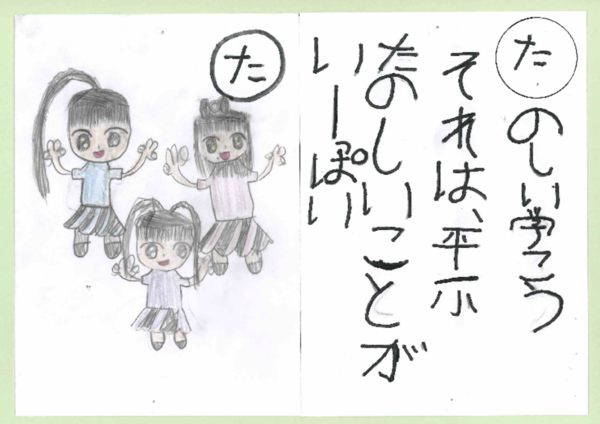 たのしい学こう
それは、平小
たのしいことが
いっぱい
た